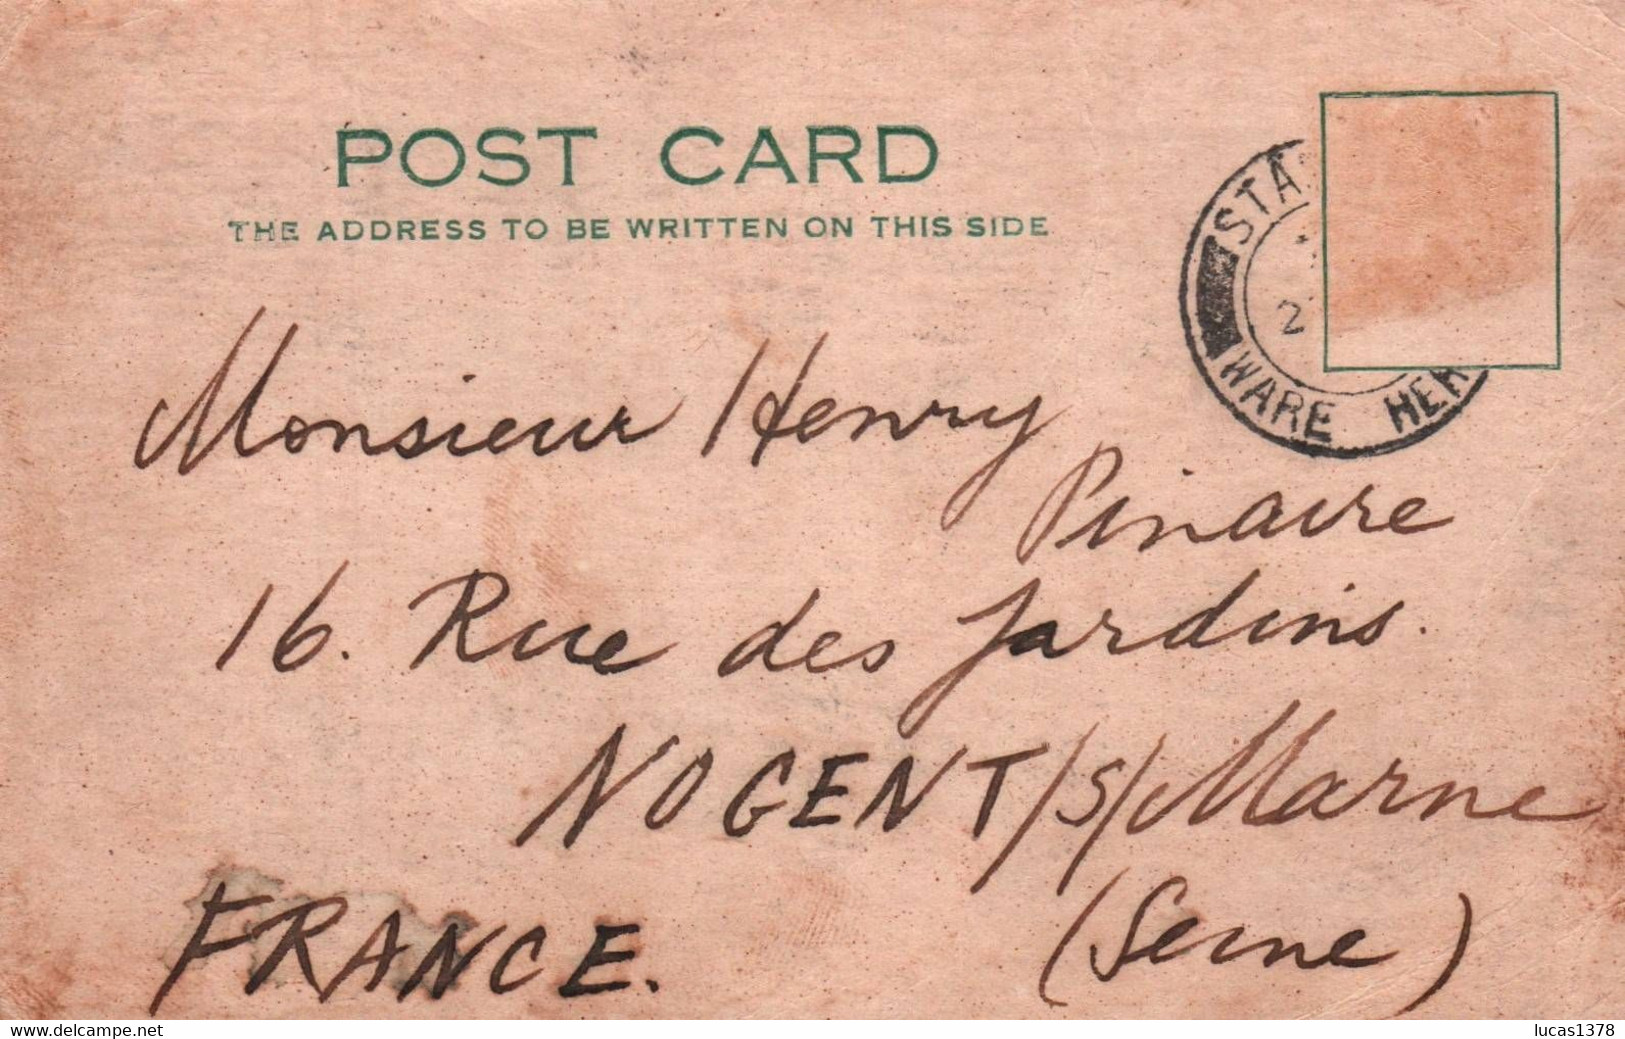 POST CARD
THE ADDRESS TO BE WRITTEN ON THIS SIDE
WARE
Monsieur Henry
Pinaire
16. Rue des Jardins.
NOGENT/s/Marne
FRANCE. (Seine)
www.delcampe.net
lucas1378